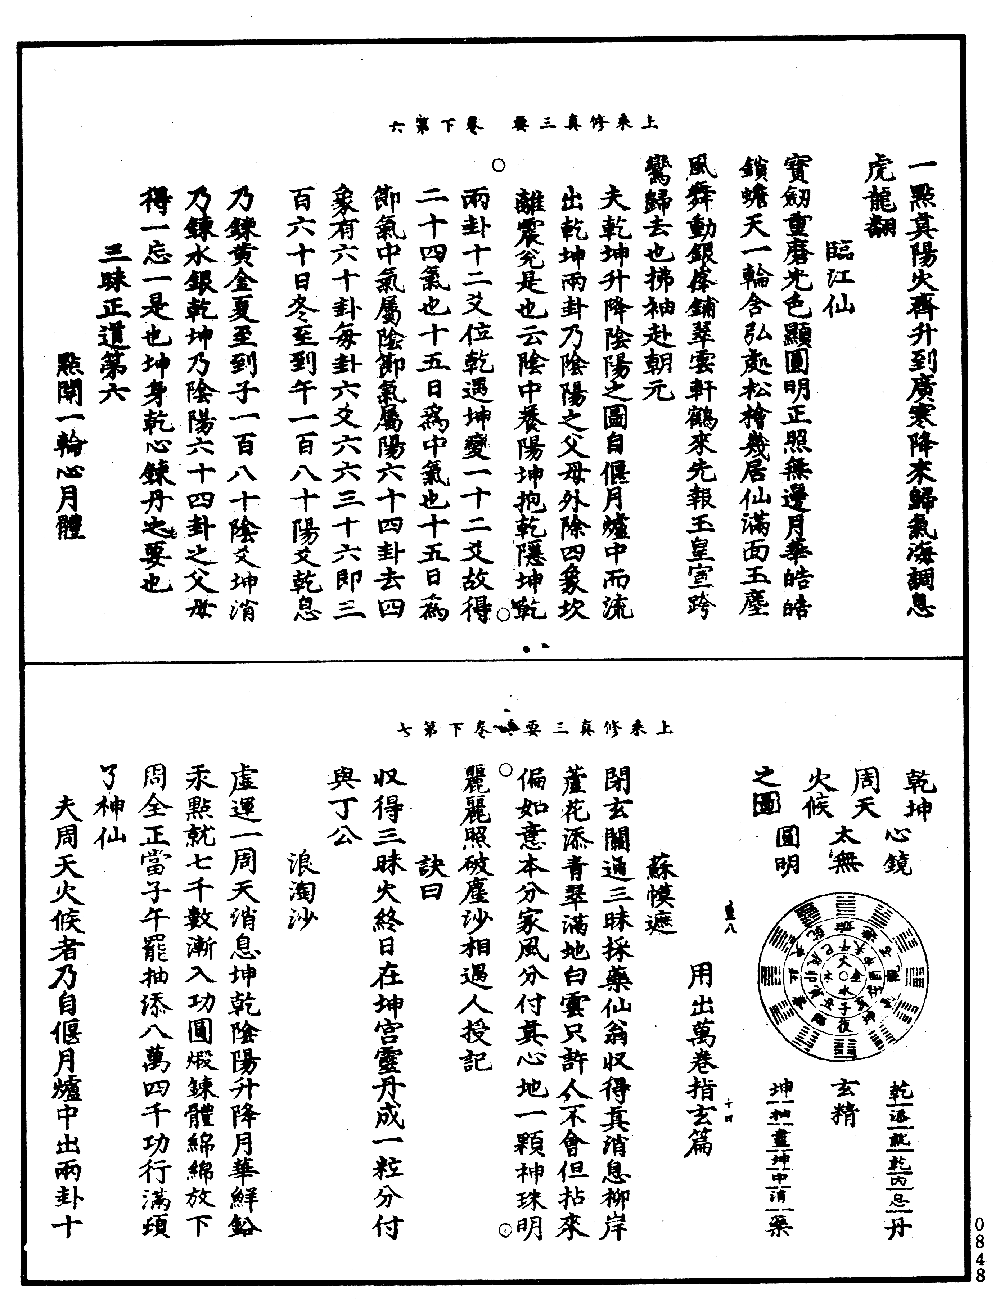 上乘修真三要　卷下第六
一點真陽火齊升到廣寒降來歸氣海調息
虎龍翻
臨江仙
寶劒重磨光色顯圓明正照無邊月華皓皓
鎖蟾天一輪含弘處松檜幾居仙滿面玉塵
風舞動銀峯鋪翠雲軒鶴來先報玉皇宣跨
鸞歸去也拂袖赴朝元
夫乾坤升降陰陽之圖自偃月爐中而流
出乾坤兩卦乃陰陽之父母外除四象坎
離震兊是也云陰中養陽坤抱乾隱坤乾
兩卦十二爻位乾遇坤變一十二爻故得
二十四氣也十五日為中氣也十五日為
節氣中氣屬陰節氣屬陽六十四卦去四
象有六十卦每卦六爻六六三十六即三
百六十日冬至到午一百八十陽爻乾息
乃鍊黃金夏至到子一百八十陰爻坤消
乃鍊水銀乾坤乃陰陽六十四卦之父母
得一忘一是也坤身乾心鍊丹之要也
三昧正道第六
點開一輪心月體
上乘修真三要　卷下第七
乾坤
周天
火候
之圖
心鏡
太無
圓明
乾添就乾丙息丹
玄精
坤抽畫坤中消藥
用出萬卷指玄篇
蘇幙遮
閉玄關通三昧採藥仙翁収得真消息柳岸
蘆花添青翠滿地白雲只許人不會但拈來
偏如意本分家風分付真心地一顆神珠明
麗麗照破塵沙相遇人授記
訣曰
収得三昧火終日在坤宮靈丹成一粒分付
與丁公
浪淘沙
虛運一周天消息坤乾陰陽升降月華鮮鉛
汞點就七千數漸入功圓煆鍊體綿綿放下
周全正當子午罷抽添八萬四千功行滿頊
了神仙
夫周天火候者乃自偃月爐中出兩卦十
0848